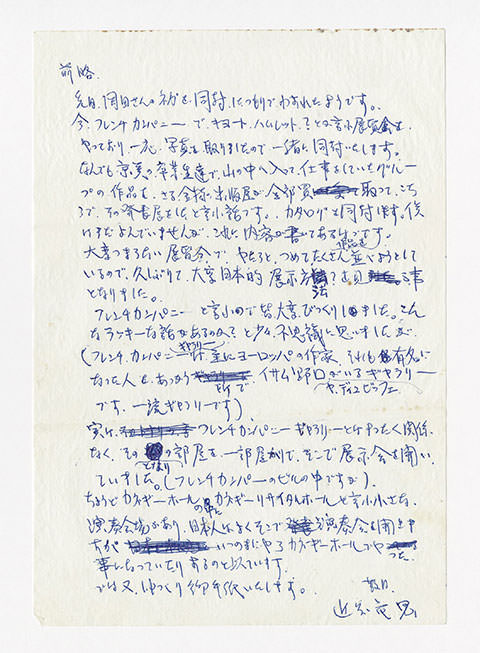 前略.
先日.岡田さんのネガを同封.したつもりでわすれたようです。.
今.フレンチカンパニーで.キヨート.ハムレット.ことは言う展覧会を
やっており一応写真を取りましたので一緒に同封いたします。
なんでも京芸の卒業生達で.山の中へ入って.仕事をしているグルー
プの作品を.さる会社に出版屋が全部買って.こち
らで.その発表展をしたと言う話です.カタログを同封します.僕
はまだよんでいませんが.これに内容が書てあるはずです.
大変つまらない展覧会で.やたらと.つめてたくさん作品を並べようとして
いるので.久しぶりで.大変日本的展示方法で
となりました。
フレンチカンパニーと言うので皆大変びっくりしました。こんな
ラッキーな話があるのか?と少々不思議に思いましたが.
(フレンチ.カンパニーギャラリーは.主にヨーロッパの作家.それも有名に
なった人を.あつかう所で.イサム野口がいるギャラリー
や.デュビュッフェ
です.一流ギャラリーです)
実は.フレンチカンパニーギャラリーとはまったく関係.
なく.そのとなりの部屋を.一部屋かりて.そこで展示会を開い
ていました。(フレンチカンパニーのビルの中ですが)
ちょうどカネギーホールの中にカネギーリサイタルホールと言う小さな
演奏会場があり.日本人はよくそこで演奏会を開き
いつのまにやらカネギーホールでやった
事になっていたりするのと似ています。
では又.ゆっくり御手紙いたします。
敬具.
近藤竜男